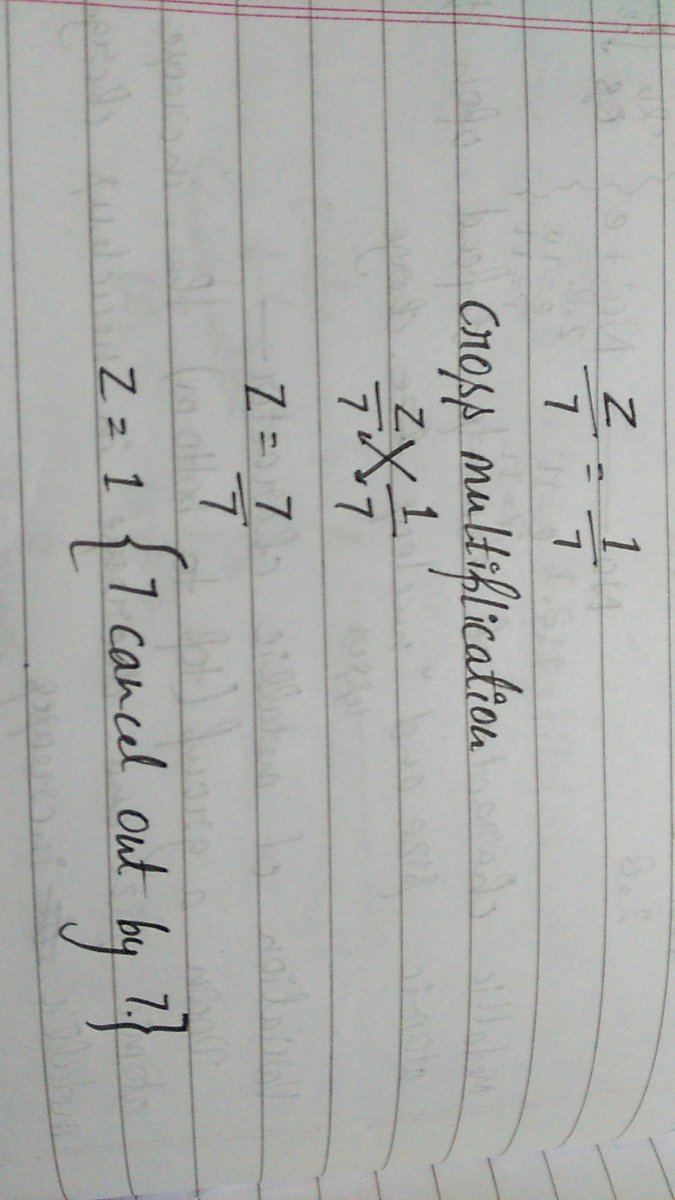 Z/7 = 1/7
Cross multiplication
Z/7 ⤫ 1/7
Z = 7/7
Z = 1 {7 cancel out by 7.}